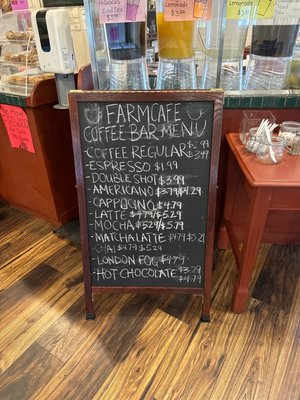 Hibiscus
Iced Tea
$3.99
Lemonade
FARMCAFE
COFFEE BAR MENU
COFFEE REGULAR $2.99
$3.99
-ESPRESSO $1.99
-DOUBLE SHOT $3.99
-AMERICANO $3.79/$4.29
-CAPPUCINO $4.79
-LATTE $4.79/$5.29
-MOCHA $5.29/$5.79
-MATCHA LATTE $4.79 5.29
-CHAI $4.79-$5.29
-LONDON FOG $4.79
-HOT CHOCOLATE $3.79
$4.79